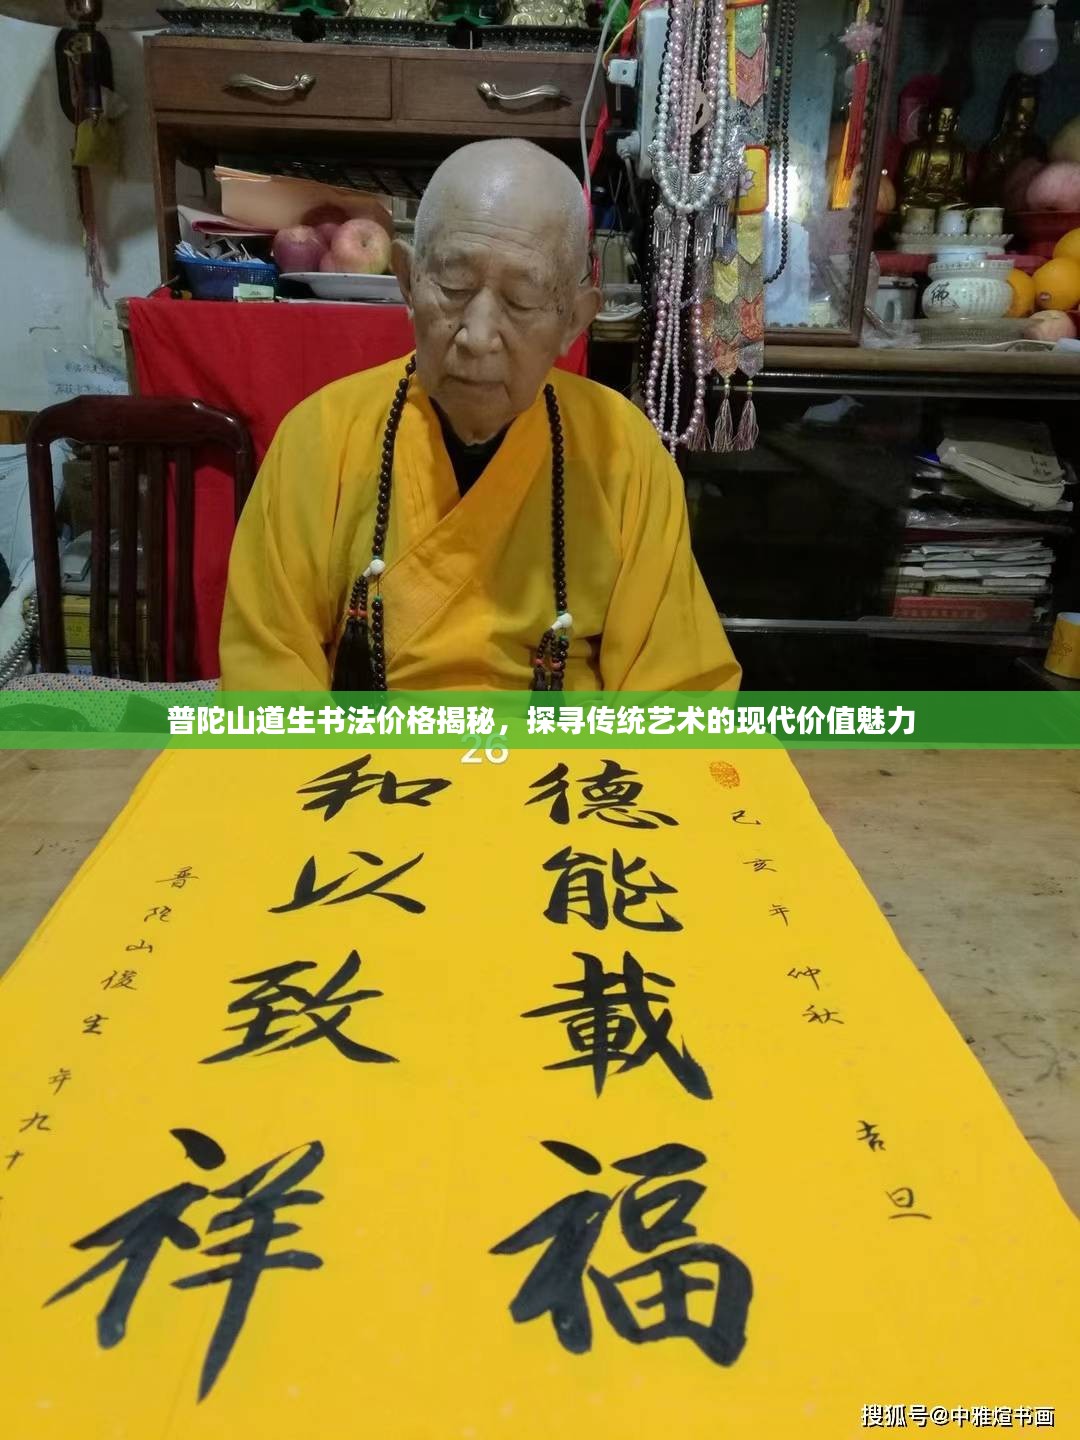 普陀山道生书法价格揭秘，探寻传统艺术的现代价值魅力
26
己亥年仲秋 吉旦
德能載福
和以致祥
普陀山俊生年九十
佛
搜狐号@中雅煊书画